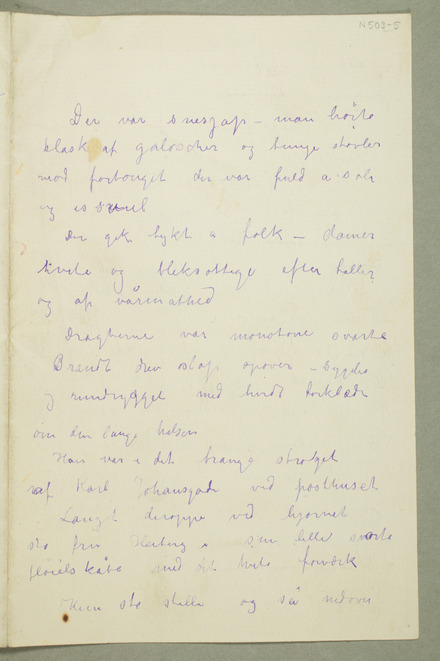 N 503-5
Der var snesjap – man hørte
klask af galoscher og tunge støvler
mod fortouget der var fuld a søle
og is
Der gik tykt a folk – damer
hvide og bleksottige efter baller
og af vårmathed
Dragterne var monotone svarte
Brandt drev slap opover –
og rundrygget med hvidt tørklæde
om den lange halsen
Han var i det trange strøget
af Karl Johansgade ved posthuset
Langt deroppe ved hjørnet
sto fru Heiberg i sin lille svarte
fløielskåbe med det hvite forværk
Hun sto stille og så nedover